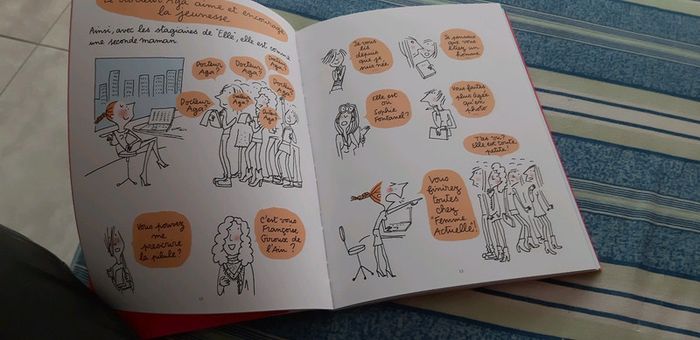 Le Docteur Aga aime et encourage
la jeunesse
Ainsi, avec les stagiaires de "Elle", elle est comme
une seconde maman.
Docteur
Aga?
Docteur
Aga?
Docteur
Aga?
Docteur
Aga?
Docteur
Aga?
Aga?
Aga?
Vous pouvez
me
prescrire
la pilule?
C'est vous
Françoise
Giroux de
l'Ain?
12
Je vous
lis
depuis
que je
suis née
Je pensais
que vous
étiez un
homme
Elle est
où
Sophie
Fontanel?
Vous faites
plus âgée
qu'en
photo
T'as vu?
Elle est toute
petite!
Vous
finirez
toutes
chez
"Femme
Actuelle"!
13